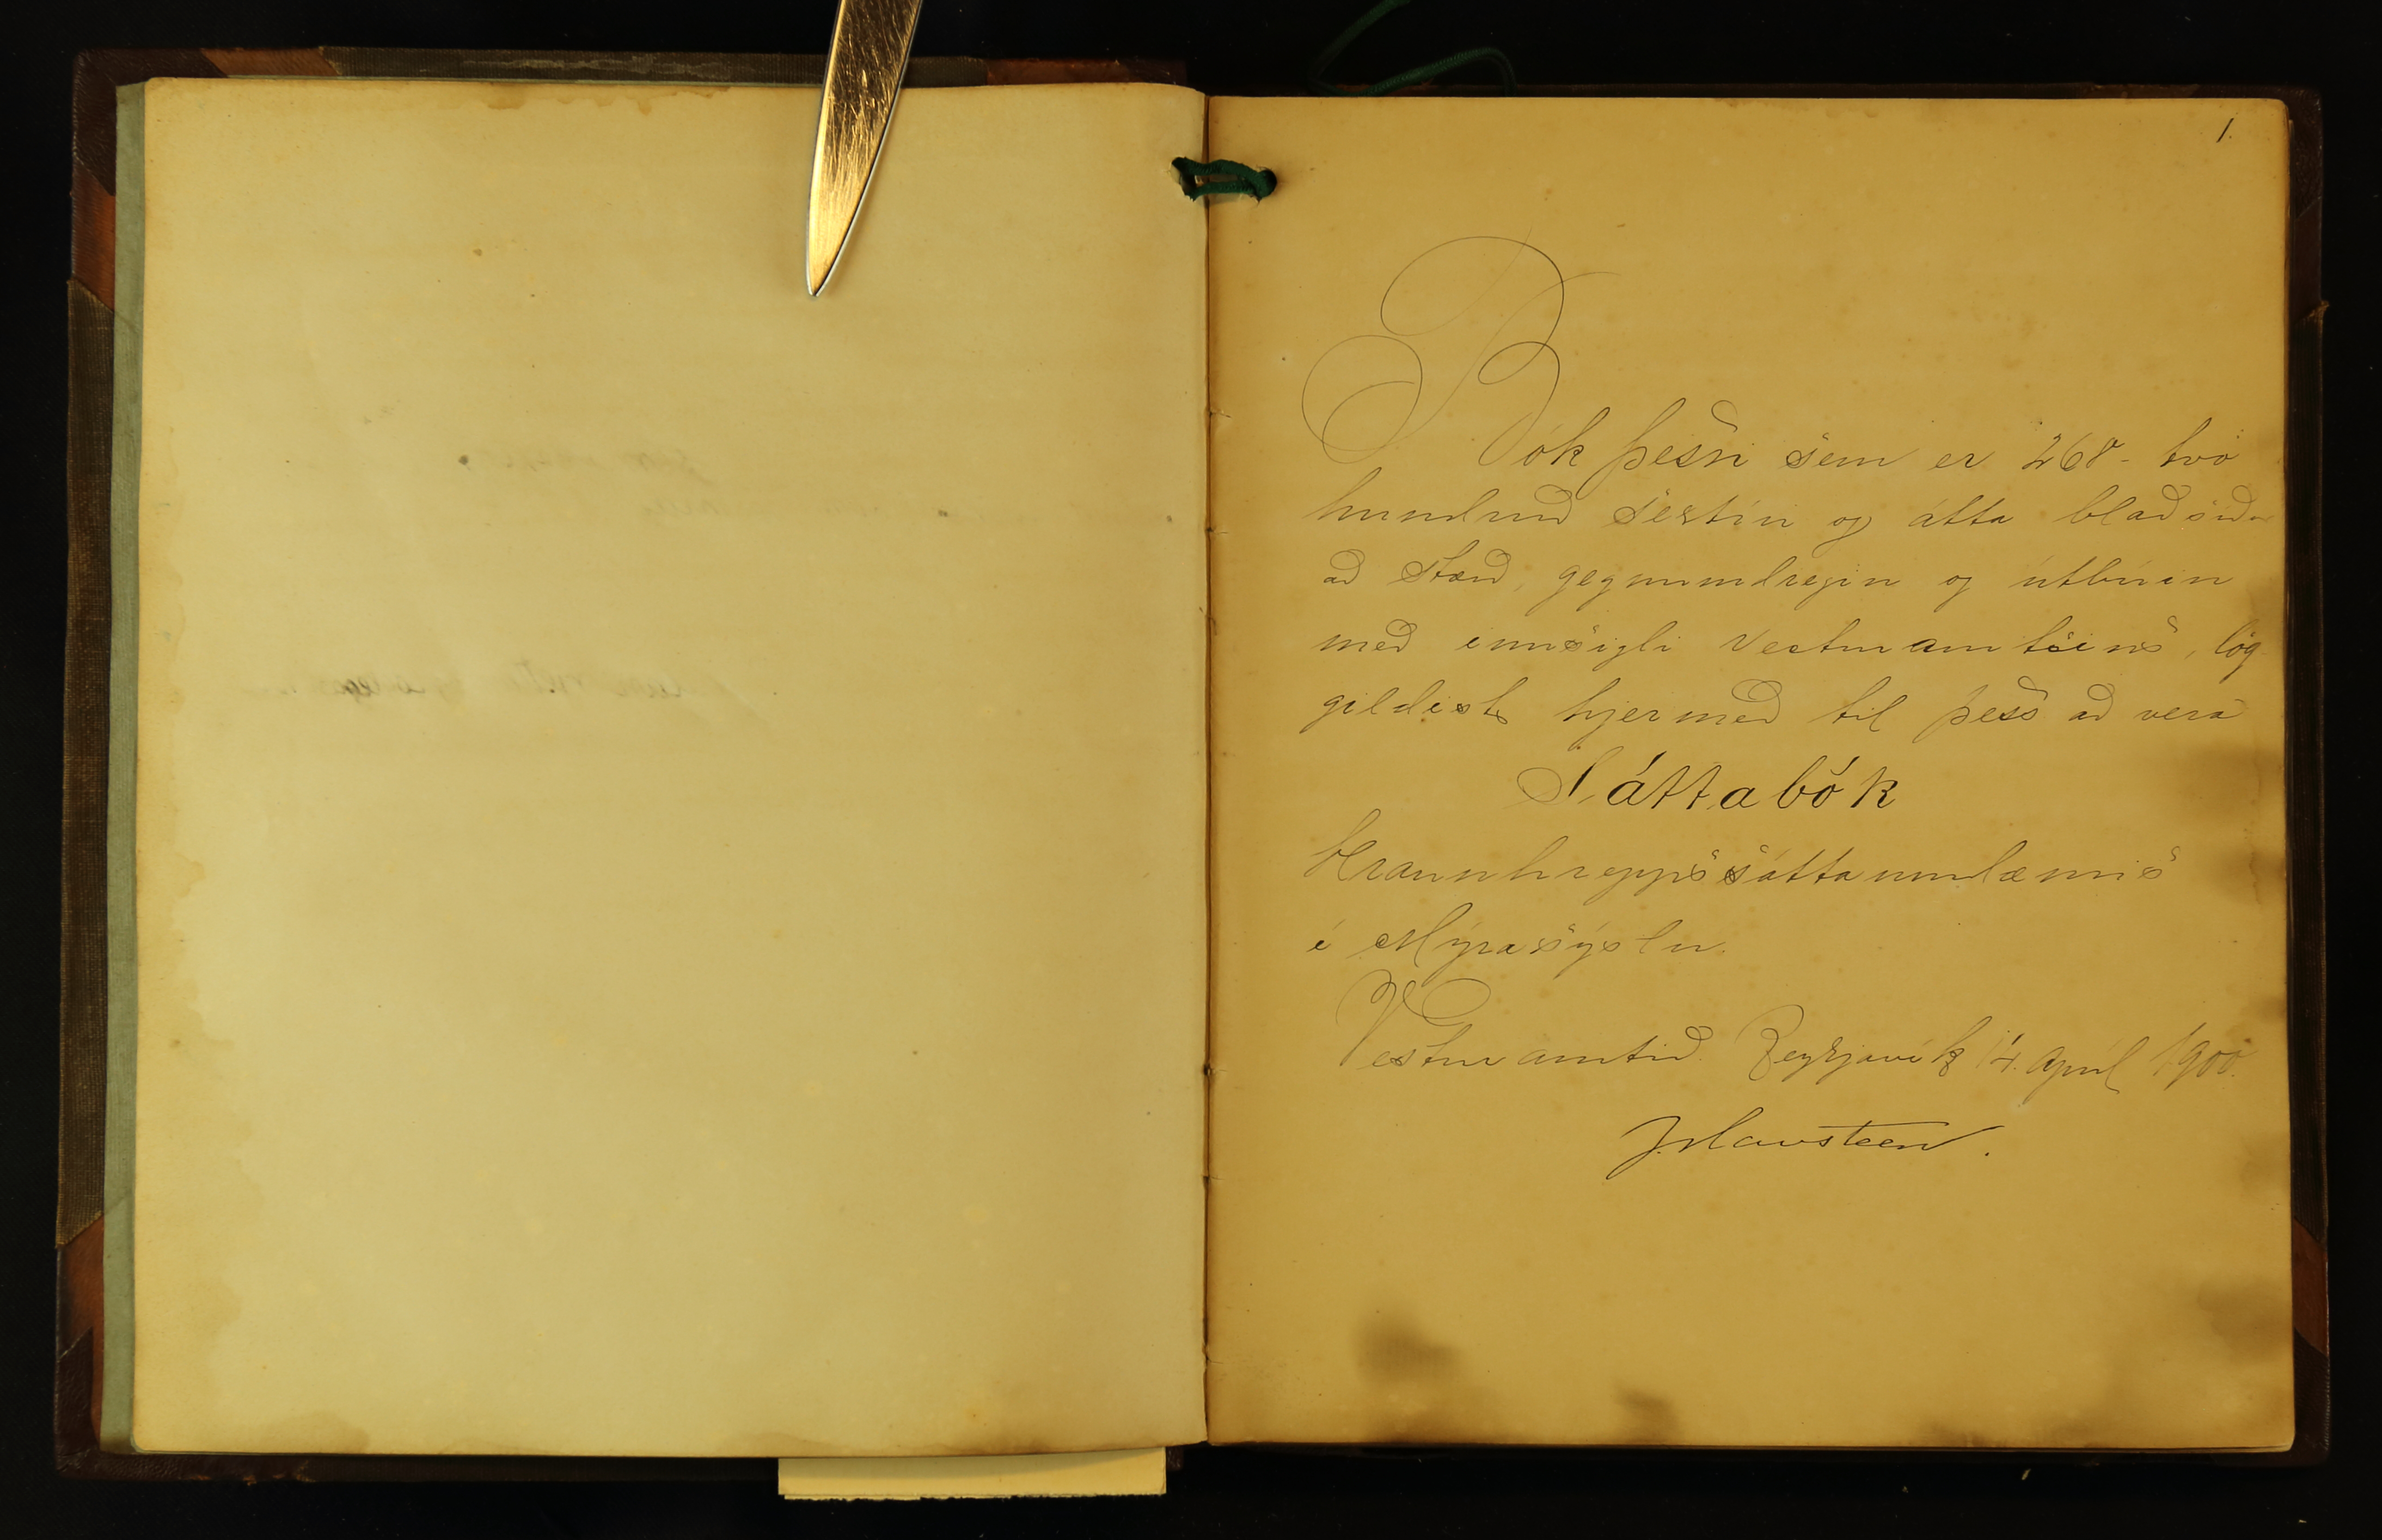 1.
Bók þessi sem er 268 - tvö
hundruð sextíu og átta blaðsíður
að stærð, gegnumdregin og útbúin
með innsigli Vesturamtsins, lög
gildist hjer með til þess að vera
Sáttabók
Hraunhreppssáttaumdæmis
í Mýrasýslu.
Vesturamtið. Reykjavík 14. apríl 1900.
J. Havsteen.